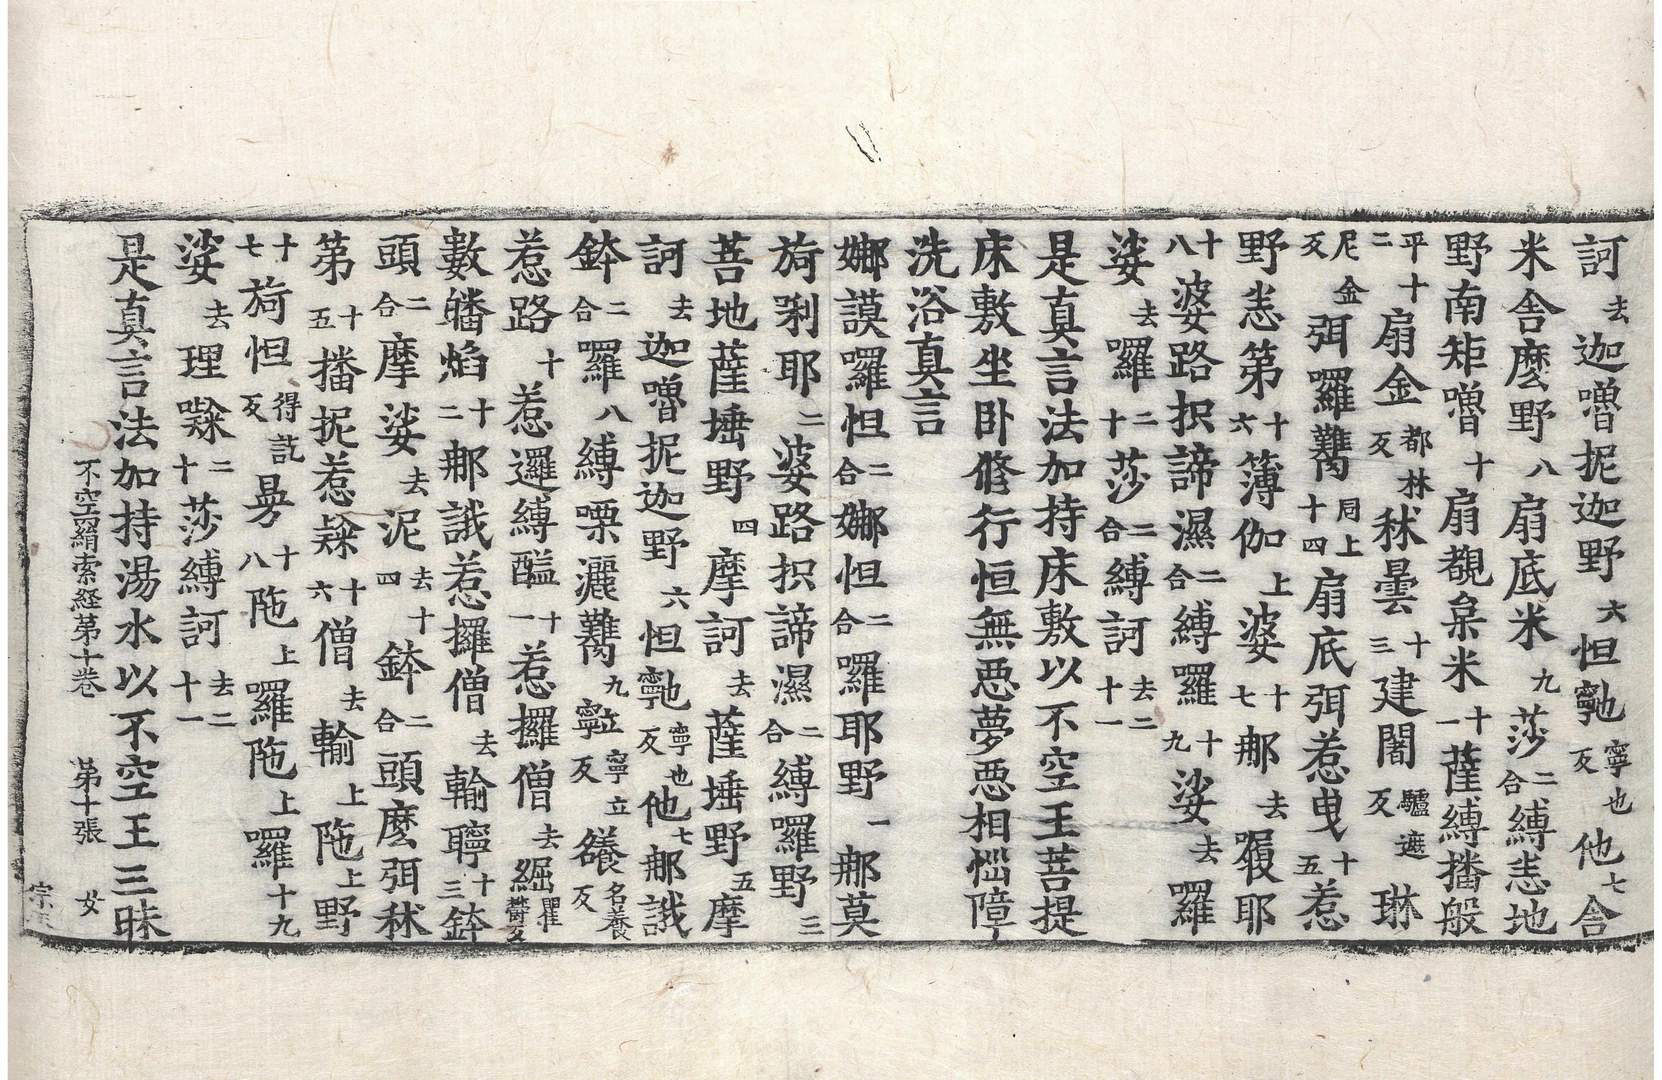 訶去迦嚕抳迦野六怛𩕳寧也反他七舍
米舍麽野八扇底米九莎二合縛恚地
野南矩嚕十扇覩枲米十一薩縛播般
平十二扇金都林反秫曇十三建闍驢遮反琳
尼金反弭囉難同上十四扇底弭惹曳十五惹
野恚第十六簿伽上婆十七那去履耶
十八婆路抧諦濕二合縛囉十九娑去囉
娑去囉二十莎二合縛訶去二十一
是真言法加持床敷以不空王菩提
床敷坐卧修行恒無惡夢惡相惱障
洗浴真言
娜謨囉怛二合娜怛二合囉耶野一那莫
旖唎耶二婆路抧諦濕二合縛囉野三
菩地薩埵野四摩訶去薩埵野五摩
訶去迦嚕抳迦野六怛𩕳寧也反他七那誐
鉢二合囉八縛㗚灑難九寧立反鑀名養反
惹路十惹邏縛醯十一惹攞僧去𦀗瞿鬱反
數皤焰十二那誐惹攞僧去輸聹十三鉢
頭二合摩娑去泥四去十鉢二合頭麽弭秫
第十五播抳惹㰠十六僧去輸上陁上野
十七旖怛得訖反㝵十八陁上囉陁上囉十九
娑去理㘑二十莎二合縛訶去二十一
是真言法加持湯水以不空王三昧
不空羂索経第十卷 第十張 女